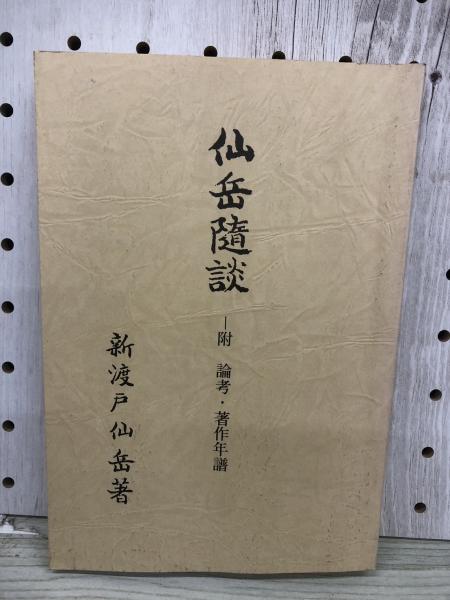 仙岳隨談
―附 論考・著作年譜
新渡戸仙岳著